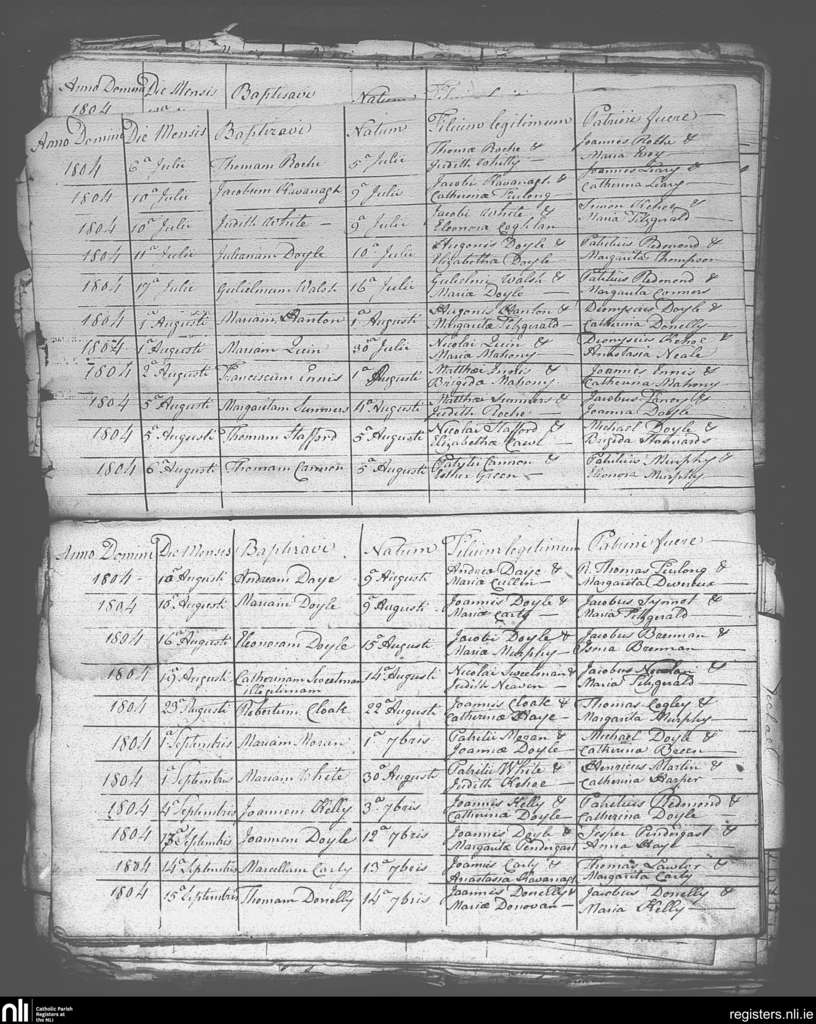 Anno Domini Die Mensis Baptisavi Natum
1804
Anno Domini Die Mensis Baptizavi Natum Filium legitimum Patrini fuere
1804 6a Julii Thomam Roche 5a Julii Thomæ Roche & Judith Whitty Joannes Rothe & Maria Roy
1804 10a Julii Jacobum Kavanagh 9a Julii Jacobi Kavanagh & Catherinæ Furlong Joannes Leary & Catherina Leary
1804 10a Julii Judith White 9a Julii Jacobi White & Eleonora Coghlan Simon Kehoe & Maria Fitzgerald
1804 11a Julii Julianam Doyle 10a Julii Hugonis Doyle & Elizabethæ Doyle Patritius Redmond & Margarita Thompson
1804 17a Julii Gulielmum Walsh 16a Julii Gulielmi Walsh & Maria Doyle Patritius Redmond & Margarita Connors
1804 1a Augusti Mariam Hanton 1a Augusti Hugonis Hanton & Margarita Fitzgerald Dionysius Doyle & Catherina Donelly
1804 1a Augusti Mariam Quin 30a Julii Nicolai Quin & Maria Mahony Dionysius Kehoe & Anastasia Neale
1804 2a Augusti Franciscum Ennis 1a Augusti Matthæi & Brigida Mahony Joannes Ennis & Catherina Mahony
1804 5a Augusti Margaritam Summers 4a Augusti Matthæi Summers & Judith Roche Jacobus & Joanna Doyle
1804 5a Augusti Thomam Stafford 5a Augusti Nicolai Stafford & Elizabethæ Michael Doyle & Brigida
1804 6a Augusti Thomam Cannon 5a Augusti Cannon & Esther Green Patritius Murphy & Elionora Murphy
Anno Domini Die Mensis Baptizavi Natum Filium legitimum Patrini fuere
1804 10a Augusti Andream Daye 9a Augusti Andreæ Daye & Maria Cullen R. Thomas Furlong & Margarita Devereux
1804 10a Augusti Mariam Doyle 9a Augusti Joannis Doyle & Mariæ Carty Jacobus Synnot & Maria Fitzgerald
1804 16a Augusti Eleonoram Doyle 15a Augusti Jacobi Doyle & Maria Murphy Jacobus Brennan & Brennan
1804 19a Augusti Catherinam Sweetman illegitimam 14a Augusti Nicolai Sweetman & Judith Neaven Jacobus & Maria Fitzgerald
1804 23a Augusti Robertum Cloak 22a Augusti Joannis Cloak & Catherinæ Haye Thomas Cogley & Margarita Murphy
1804 1a Septembris Mariam Moran 1a 7bris Patritii Moran & Joannæ Doyle Michael Doyle & Catherina
1804 1a Septembris Mariam White 30a Augusti Patritii White & Judith Kehoe Henricus Martin & Catherina Harper
1804 4a Septembris Joannem Kelly 3a 7bris Joannis Kelly & Catherinæ Doyle Patritius Redmond & Catherina Doyle
1804 13a Septembris Joannem Doyle 12a 7bris Joannis Doyle & Margaritæ Pendergast Jesper Pendergast & Anna Haye
1804 14a Septembris Marcellam Carty 13a 7bris Joannis Carty & Anastasia Kavanagh Thomas Lawler & Margarita Carty
1804 15a Septembris Thomam Donelly 14a 7bris Joannis Donelly & Mariæ Donovan Jacobus Donelly & Maria Kelly
nli Catholic Parish Registers at the NLI
registers.nli.ie